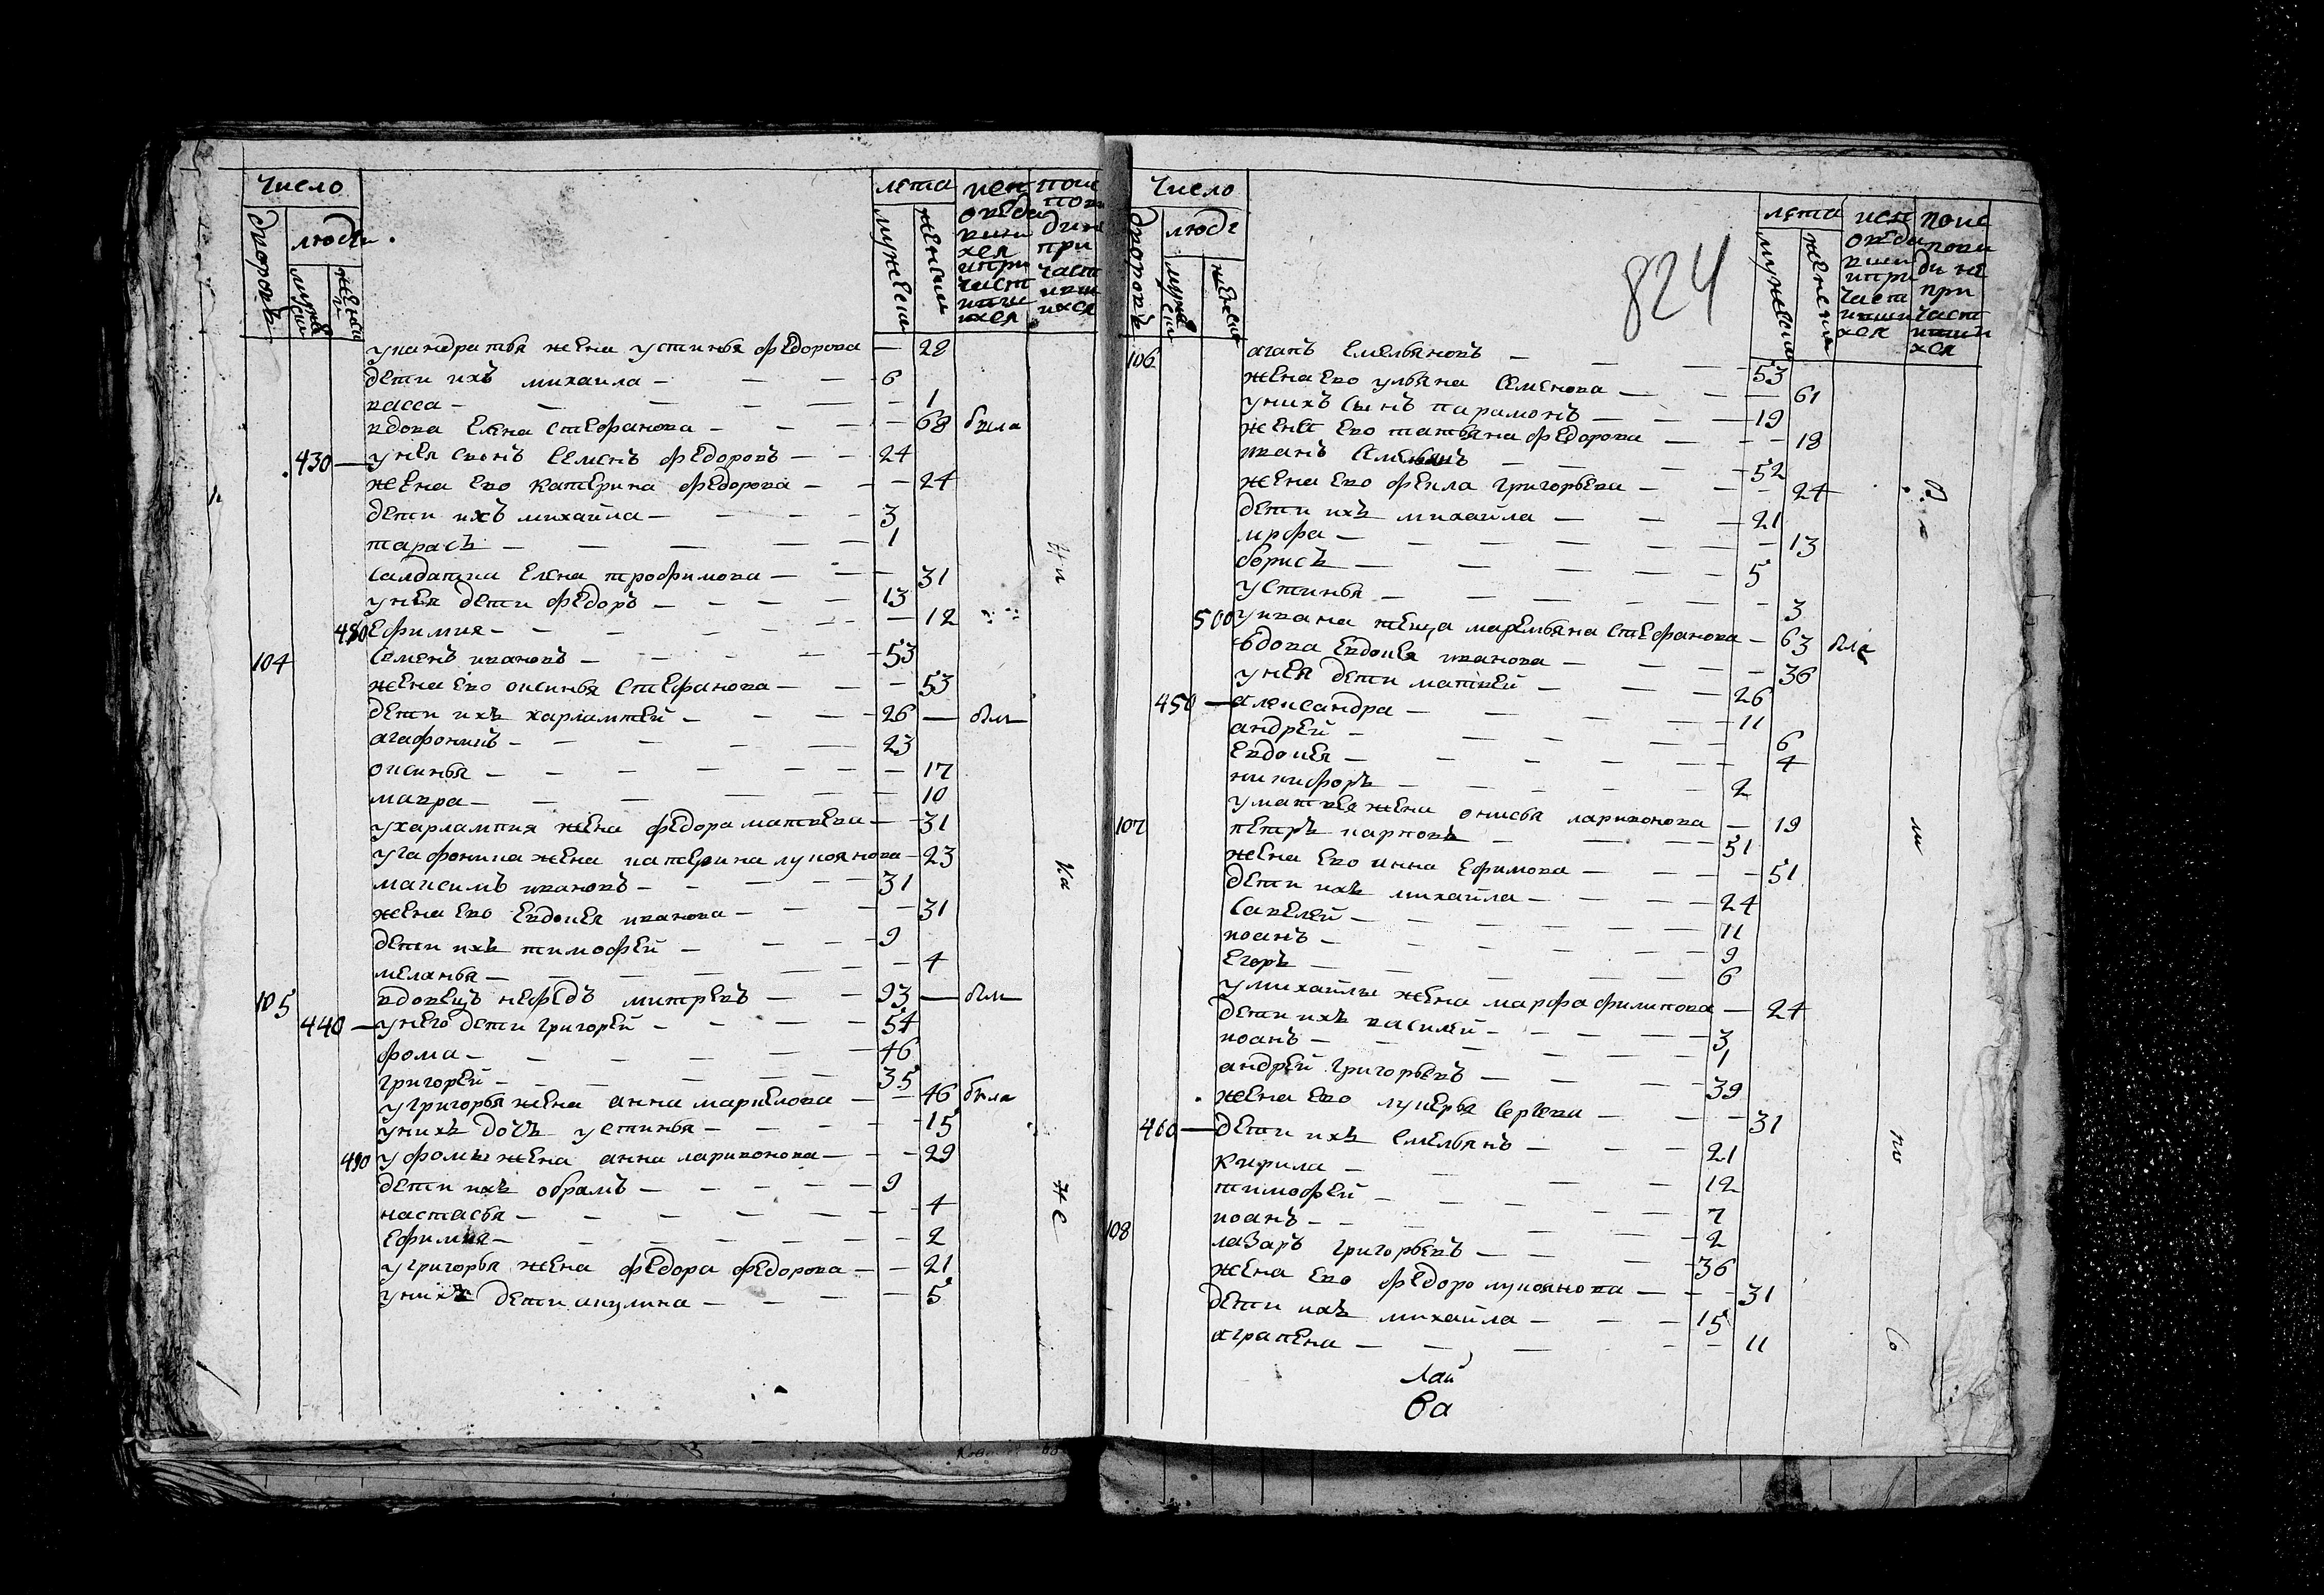 число
дворовъ
людей
мужеск
женск
лета
мужеск
женски
упандратья жена устинья федорова — 28
дети ихъ михаила — 6
васса — 1
вдова елена стефанова — 68 была
430 — унея сынъ семенъ федоровъ — 24
жена ево катерина федорова — 24
дети ихъ михаила — 3
тарасъ — 1
салдатка елена трофимова — 31
унея дети федоръ — 13
480 ефимия — 12
104 семенъ ивановъ — 53
жена ево оксинья стефанова — 53
дети ихъ харлампей — 26 — был
агафоникъ — 23
оксинья — 17
мавра — 10
ухарлампия жена федора матвева — 31
угафоника жена катерина лукоянова — 23
максимъ ивановъ — 31
жена ево евдокея иванова — 31
дети ихъ тимофей — 9
меланья — 4
105 вдовецъ нефедъ митревъ — 93 — был
440 — унего дети григорей — 54
фома — 46
григорей — 35
угригорья жена анна маркелова — 46 была
унихъ дочь устинья — 15
490 уфомы жена анна ларионова — 29
дети ихъ обрамъ — 9
настасья — 4
ефимия — 2
угригорья жена федора федорова — 21
унихъ дети акулина — 5
число
дворовъ
люде
мужеск
женски
824
лета
мужески
женски
106 агапъ емельяновъ — 53
жена ево ульяна семенова — 61
унихъ сынъ парамонъ — 19
жена ево татьяна федорова — 18
иванъ — 52
жена ево фекла григорьева — 24
дети ихъ михайла — 21
марфа — 13
борисъ — 5
устинья — 3
500 уивана жена маремьяна стефанова — 63 была
вдова евдокея иванова — 36
унея дети матвей — 26
450 — александра — 11
андрей — 6
евдокея — 4
никифоръ — 2
уматвея жена онисья ларионова — 19
107 петръ карповъ — 51
жена ево анна ефимова — 51
дети ихъ михайла — 24
савелей — 11
иоанъ — 9
егоръ — 6
умихайлы жена марфа филипова — 24
дети ихъ василей — 3
иоанъ — 1
андрей григорьевъ — 39
жена ево лукерья сергева — 31
460 — дети ихъ емельянъ — 21
кирила — 12
тимофей — 7
иоанъ — 2
108 лазаръ григорьевъ — 36
жена ево федоро лукоянова — 31
дети ихъ михайла — 15
аграпена — 11